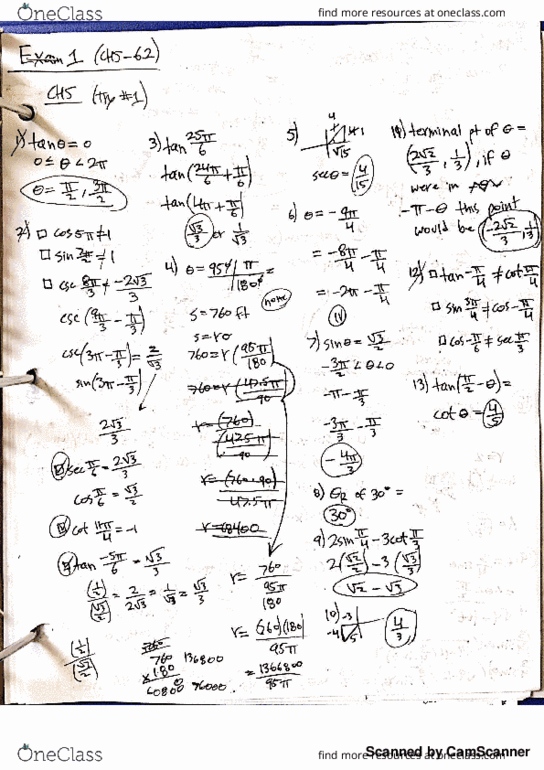 OneClass
find more resources at oneclass.com
Exam 1 (CH5-6.2)
CH5 (Try #1)
1) tanθ = 0
0 ≤ θ < 2π
θ = π/2, 3π/2
2) □ cos 5π ≠ 1
□ csc 8π/3 ≠ -2√3/3
csc(9π/3 - π/3)
csc(3π - π/3) = 2/√3
sin(3π - π/3)
2√3/3
sec π/6 = 2√3/3
cos π/6 = √3/2
cot 11π/4 = -1
tan -5π/6 = √3/3
(1/2)/(√3/2) = 2/2√3 = 1/√3 = √3/3
(1/2)/(√3/2)
3) tan 25π/6
tan(24π/6 + π/6)
tan(4π + π/6)
√3/3 or 1/√3
4) θ = 95° | π/180° =
none
s = 760 ft
s = rθ
760 = r(95π/180)
760 = r(47.5π/90)
r = (760)/(47.5π/90)
r = (760·90)/47.5π
r = 68400
r = 760/(95π/180)
r = (760)(180)/95π
= 1366800/95π
760
760 136800
×180
60800 76000
5) 4 1 √15
secθ = 4/15
6) θ = -9π/4
= -8π/4 - π/4
= -2π - π/4
IV
7) sinθ = √3/2
-3π/2 < θ < 0
-π - π/3
-3π/3 - π/3
-4π/3
8) θR of 30° =
30°
9) 2sin π/4 - 3cot π/3
2(√2/2) - 3(√3/3)
√2 - √3
10) -3
-4 5
4/3
11) terminal pt of θ =
(2√2/3, 1/3), if θ
were in
-π-θ this point
would be (-2√2/3, 1/3)
12) □ tan -π/4 ≠ cot π/4
□ sin 3π/4 ≠ cos -π/4
□ cos -π/6 ≠ sec π/3
13) tan(π/2 - θ) =
cot θ = 4/5
Scanned by CamScanner
OneClass
find more resources at oneclass.com